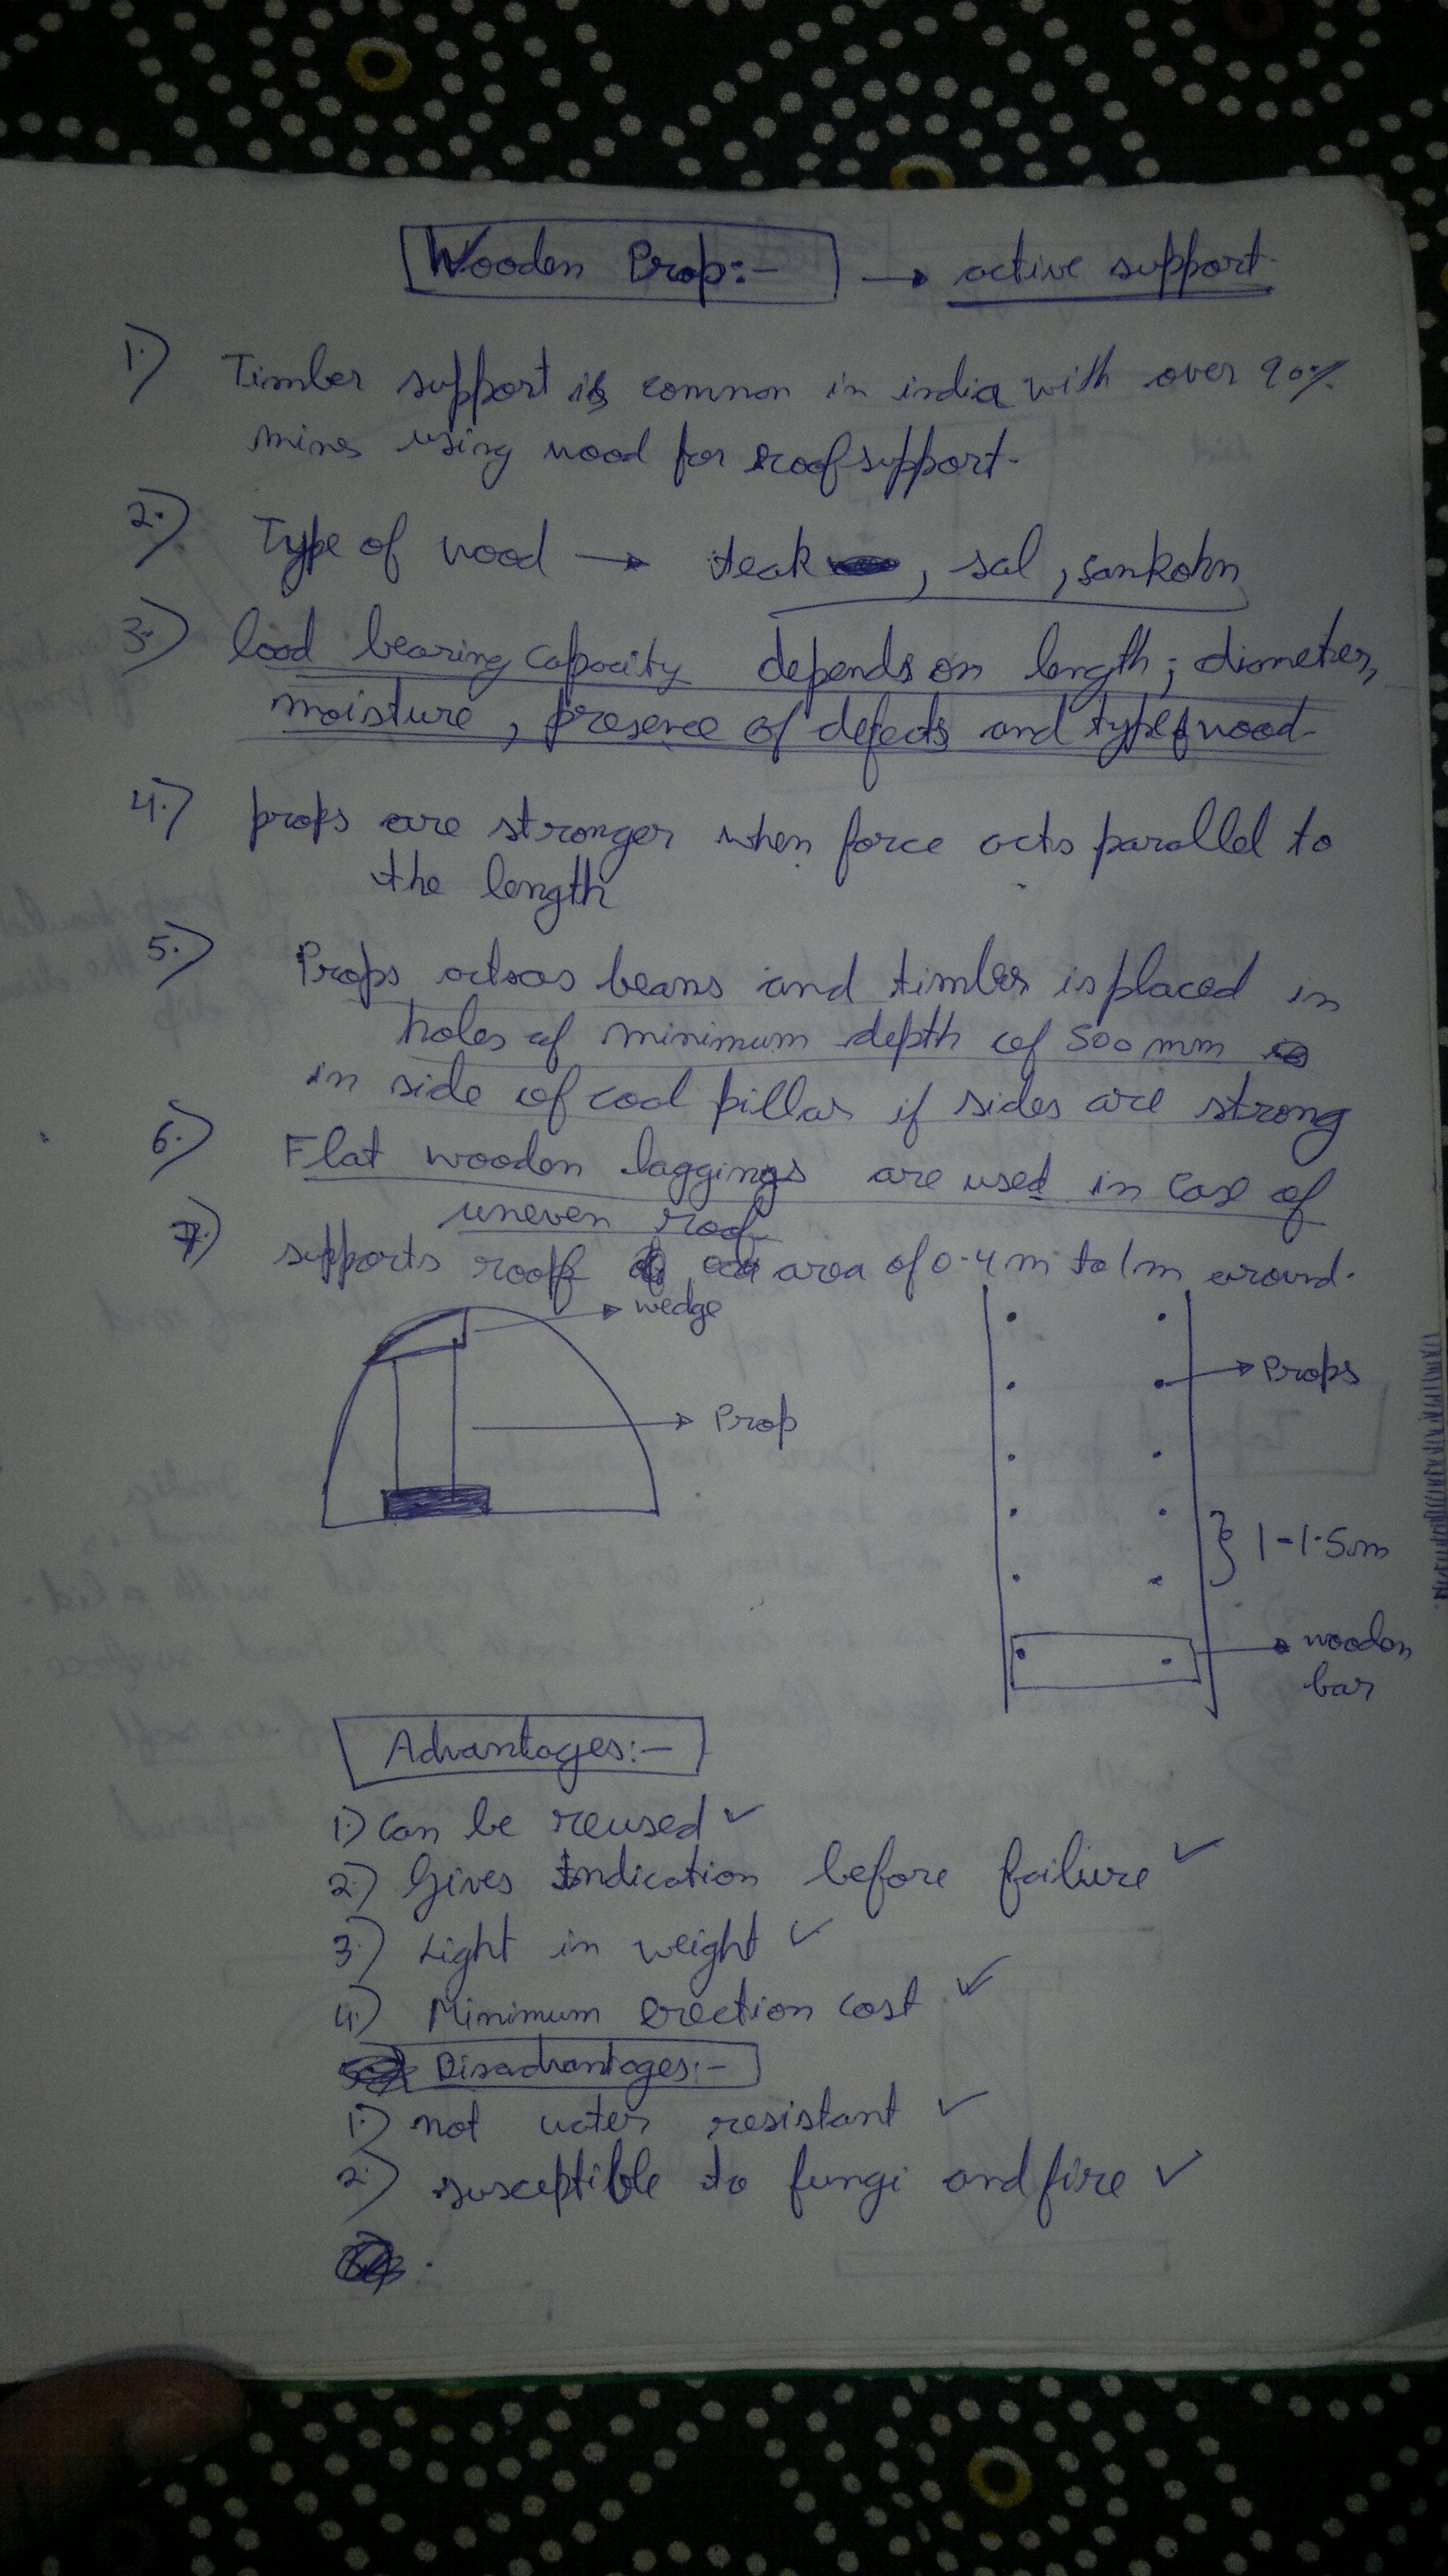 Wooden Prop:- → active support
1.) Timber support is common in india with over 90%
mines using wood for roof support.
2.) Type of wood → teak, sal, sankohn
3.) load bearing capacity depends on length; diameter,
moisture, presence of defects and type of wood.
4.) props are stronger when force acts parallel to
the length
5.) Props acts as beans and timber is placed in
holes of minimum depth of 500 mm
in side of coal pillar if sides are strong
6.) Flat wooden laggings are used in case of
uneven roof
7.) supports roof area of 0.4m to 1m around.
wedge
Prop
Props
1-1.5m
wooden
bar
Advantages:-
1.) can be reused ✓
2.) Gives Indication before failure ✓
3.) Light in weight ✓
4.) Minimum erection cost ✓
Disadvantages:-
1.) not water resistant ✓
2.) susceptible to fungi and fire ✓